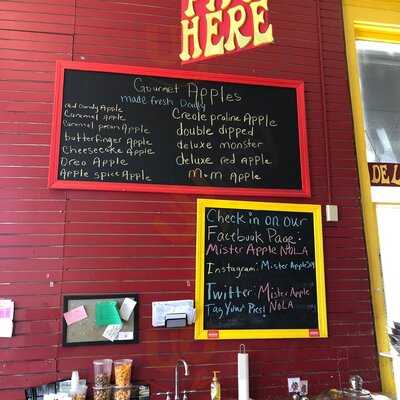 PAY
HERE
Gourmet Apples
made fresh Daily
red Candy Apple
Caramel Apple
Caramel pecan Apple
butterfinger Apple
Cheesecake Apple
Oreo Apple
Apple spice Apple
Creole praline Apple
double dipped
deluxe monster
deluxe red apple
m.m Apple
Check in on our
Facebook Page:
Mister Apple NOLA
Instagram: Mister Apple
Twitter: Mister Apple
NOLA
Tag Your Pics!
DE L